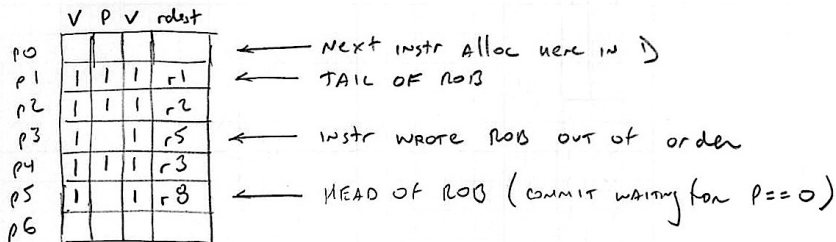 V P V rdest
p0 ← Next instr Alloc here in D
p1 1 1 1 r1 ← TAIL OF ROB
p2 1 1 1 r2
p3 1 1 r5 ← instr wrote ROB out of order
p4 1 1 1 r3
p5 1 1 r8 ← HEAD OF ROB (commit waiting for P==0)
p6